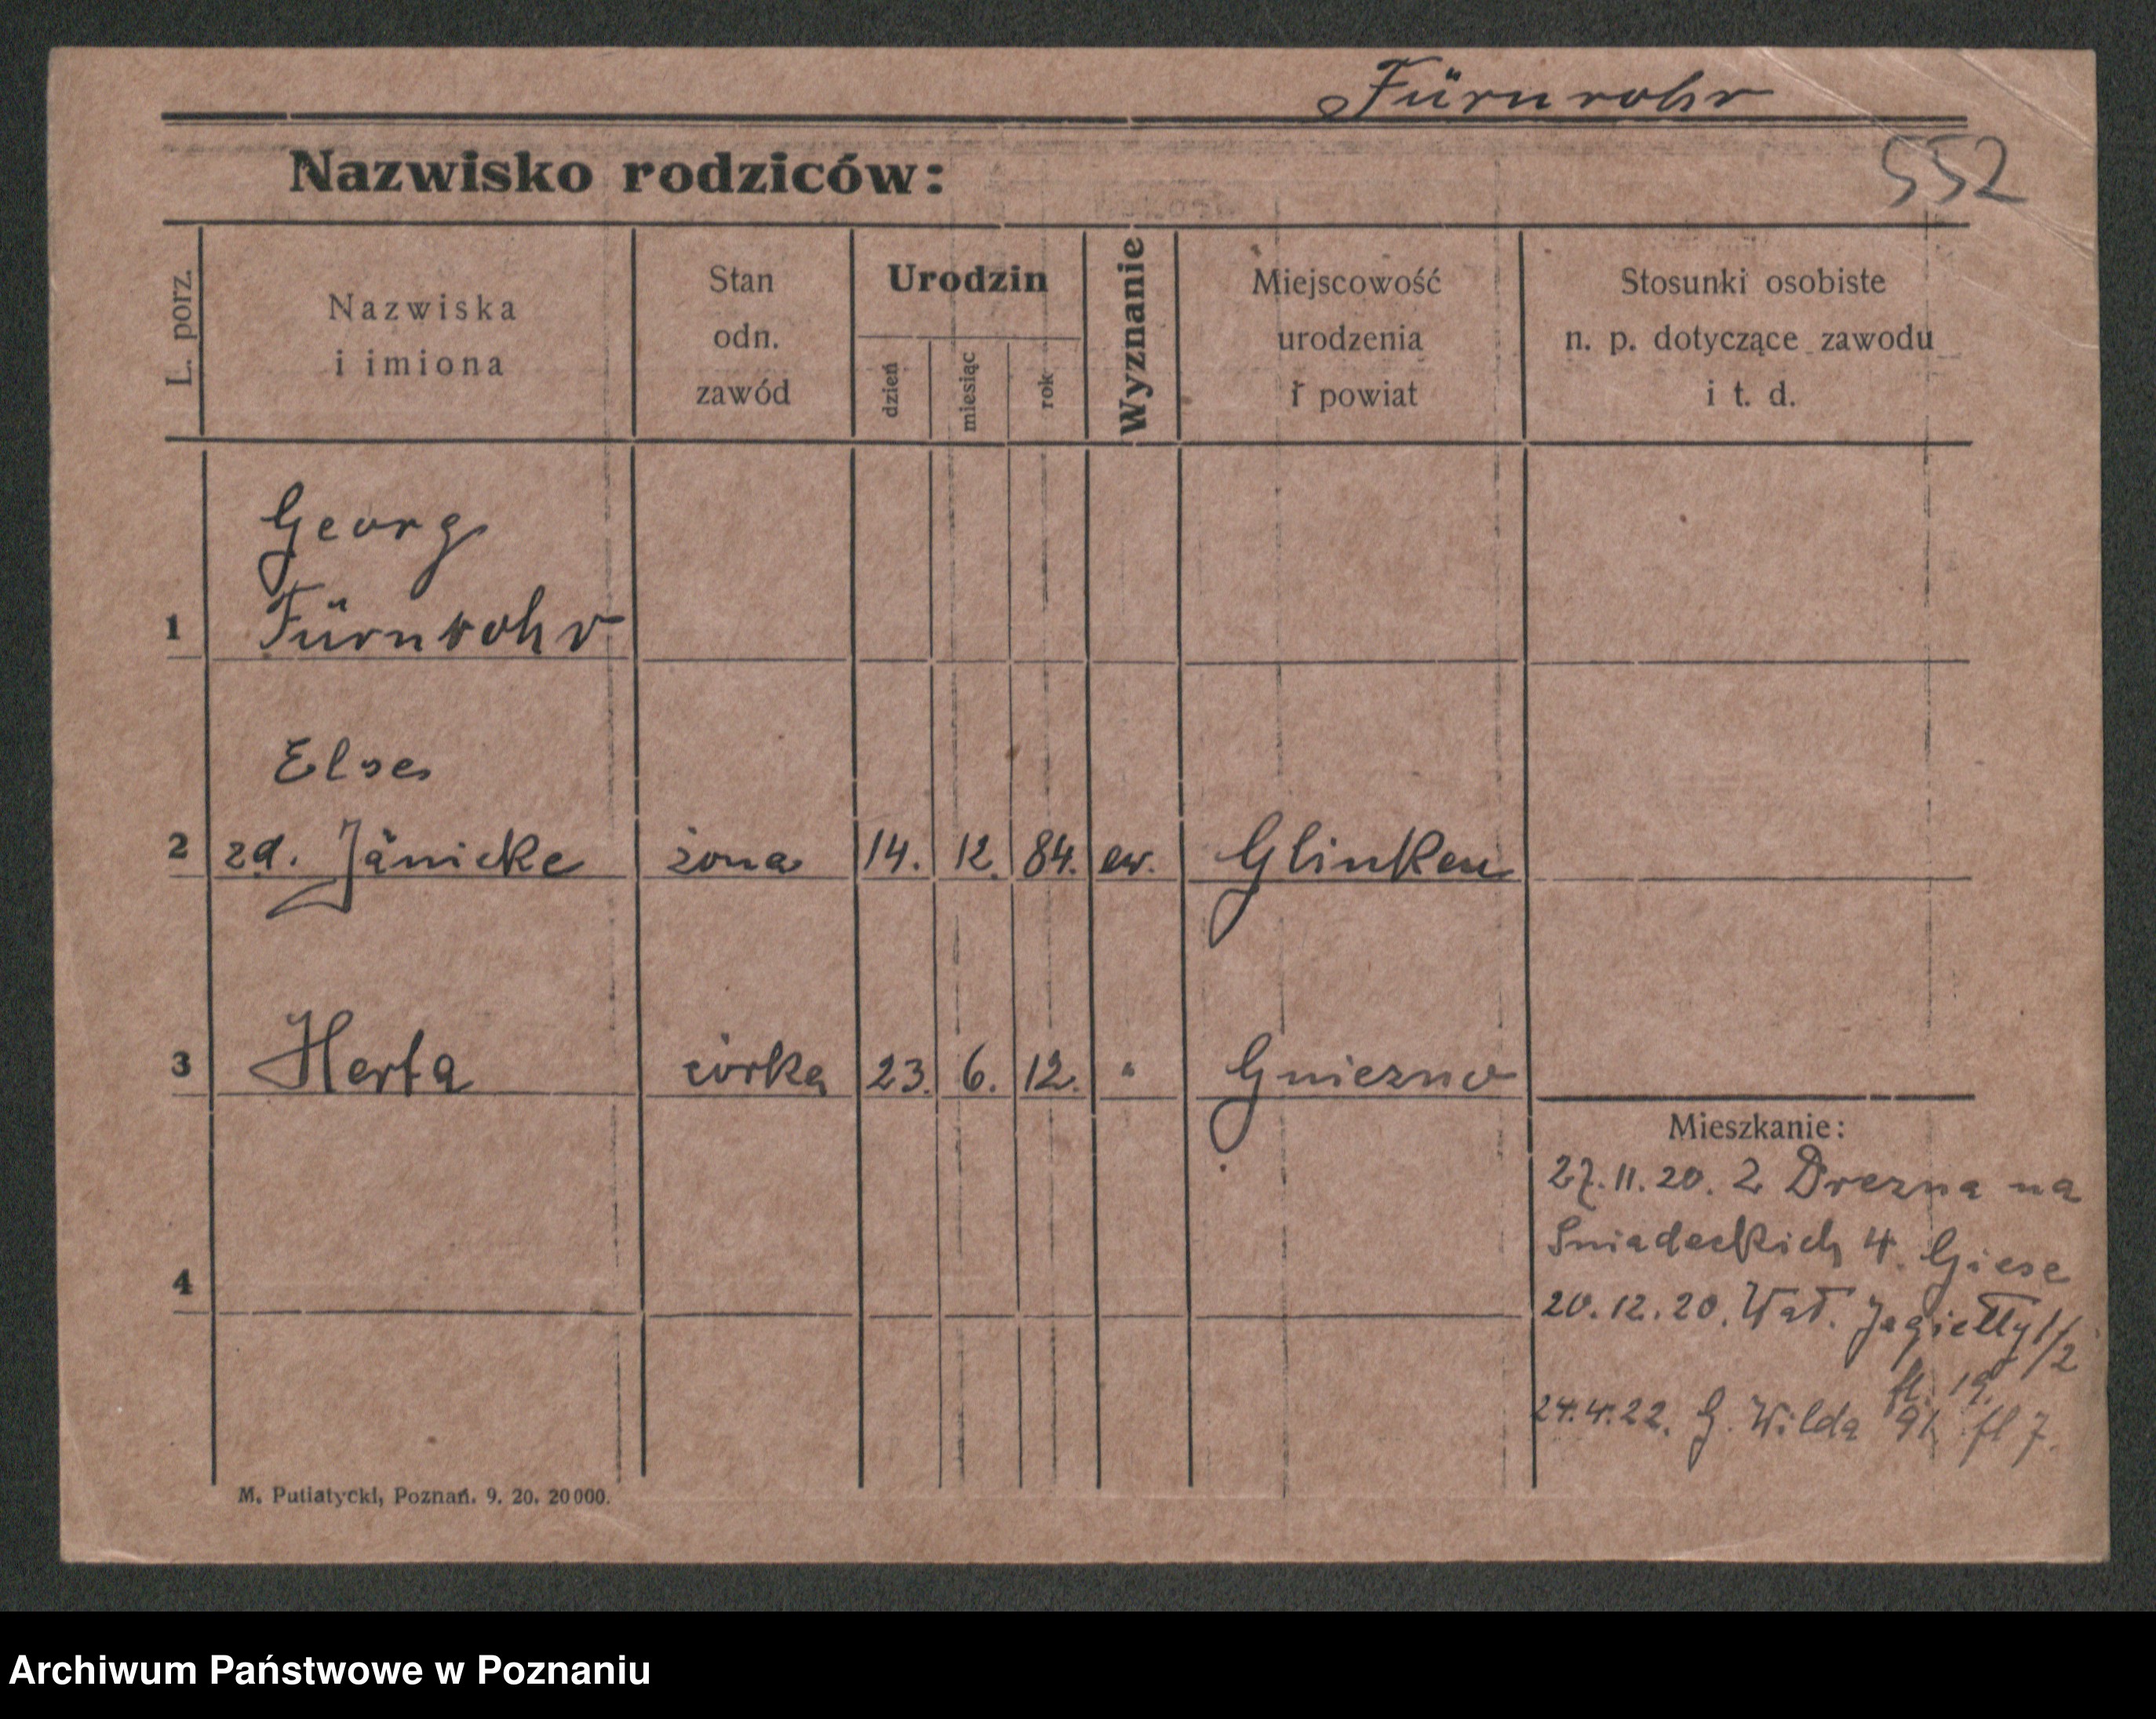 Fürnrohr
552
Nazwisko rodziców:
L. porz.
Nazwiska
i imiona
Stan
odn.
zawód
Urodzin
dzień
miesiąc
rok
Wyznanie
Miejscowość
urodzenia
i powiat
Stosunki osobiste
n. p. dotyczące zawodu
i t. d.
Georg
1 Fürnrohr
Else
2 zd. Jänicke żona 14. 12. 84. ew. Glinken
3 Herta córka 23. 6. 12. " Gniezno
Mieszkanie:
27.11.20. z Drezna na
Sniadeckich 4. Giese
4
20.12.20. Wał. Jagiełły 1/2
fl. 19.
24.4.22. G. Wilda 91 fl 7.
M. Putiatycki, Poznań. 9. 20. 20000.
Archiwum Państwowe w Poznaniu